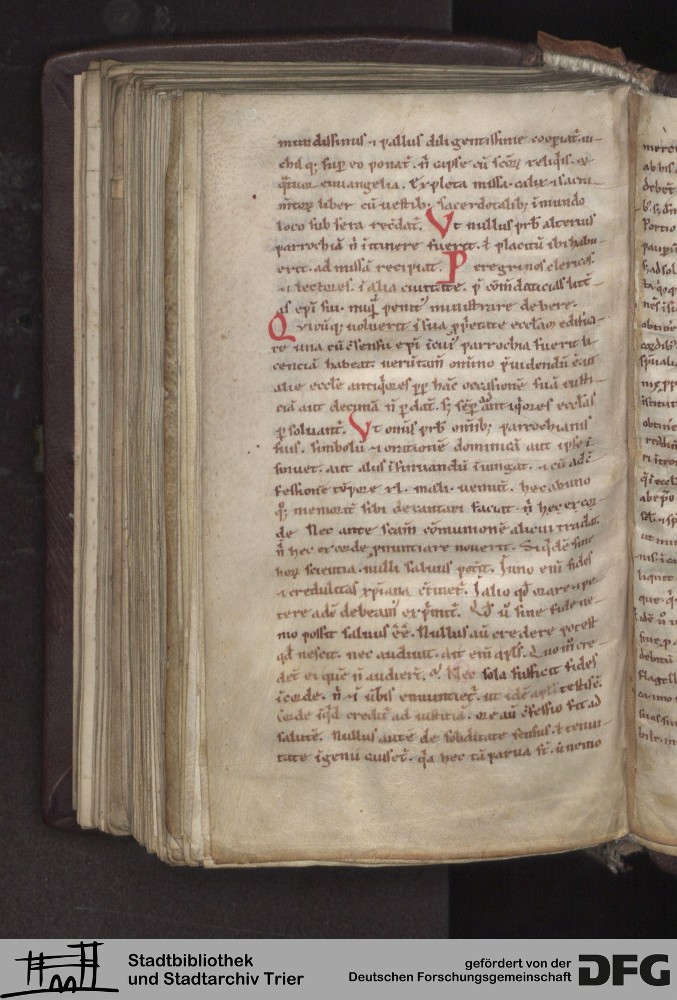 mundissimus ⁊ pallus diligentissime cooꝑiat᷑. ni-
chil q; suꝑ eo ponat᷑. n̄ capse cū scōꝝ reliqͥis. ⁊
qͣtuor euuangelia. Expleta missa. calix ⁊ sacra-
m̄toꝝ liber cū uestib; sacerdotalib; ī mundo
loco sub sera recōdat᷑. Vt nullus pr̄b alterius
parrochiā n̄ ī itinere fuerit. ł placitū ibi habu-
erit. ad missā recipiat. Peregrinos clericos.
⁊ lectores. ī alia ciuitate. p̄ cōmdaticias litt̄-
as ep̄i sui. nusqͣ̄ penit᷒ ministrare debere.
Qvicūq; uoluerit ī sua ꝓpͥetate eccl̄am edifica-
re una cū c̄sensu ep̄i ī cui᷒ parrochia fuerit li-
cenciā habeat. uerūtam̄ om̄ino p̄uidendū ē. ut
alie eccl̄e antiqͥores ꝓp̄ hāc occasionē suā iusti-
ciā aut decimā n̄ ꝑdāt. s; sēꝑ ad antiqͥores eccl̄as
ꝑsoluant᷑. Vt om̄is pr̄b om̄ib; parrochianis
suis. simbolū ⁊ orationē dominicā aut ipse ī-
sinuet. aut aliis īsinuandū iniungat. ⁊ cū ad c̄-
fessionē tēpore xl. mali. uenint̄. hec a uno
q̊q; memorit̄ sibi decantari faciat. n̄ hec ex cor-
de Nec ante sc̄am cōmunionē alicui tradat.
n̄ hec ex corde ꝓnuntiare nouerit. Siqͥdē sine
hoꝝ scientia. nulli saluus pot̄it. In uno eni fides
⁊ credulitas xp̄iana c̄tinet᷑. In alio qd̄ orare ⁊ pe-
tere a dō debeam᷒ exp̄mit᷑. Qd̄ ū sine fide ne-
mo possit saluus eē. Nullus au credere potest
qd̄ nescit. nec audiuit. dic̄ eni apl̄s. Quom̊ cre-
dēt ei quē n̄ audiert̄. ⁊ Nec sola sufficit fides
ī corde. n̄ ⁊ ī ūbis enuntiet᷑. ut idē apl̄s testis ē.
Corde īqͥd credit᷑ ad iustitiā. ore au c̄fessio fit ad
salutē. Nullus autē de sobditate sensus. ł tenui-
tate īgenii causet᷑. qͣ hec tā parua st̄. ū nemo
Stadtbibliothek
und Stadtarchiv Trier
gefördert von der
Deutschen Forschungsgemeinschaft
DFG